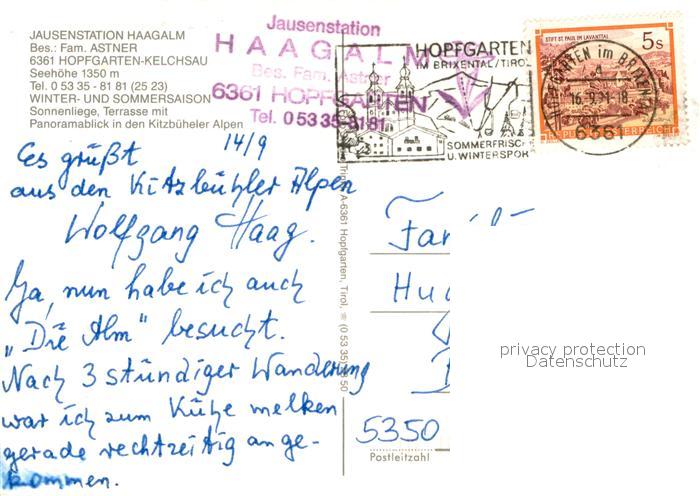 JAUSENSTATION HAAGALM
Bes.: Fam. ASTNER
6361 HOPFGARTEN-KELCHSAU
Seehöhe 1350 m
Tel. 0 53 35 - 81 81 (25 23)
WINTER- UND SOMMERSAISON
Sonnenliege, Terrasse mit
Panoramablick in den Kitzbüheler Alpen
Jausenstation
HAAGALM
Bes. Fam. Astner
6361 HOPFGARTEN
Tel. 05335-8181
HOPFGARTEN
IM BRIXENTAL/TIROL
SOMMERFRISCHE
U. WINTERSPORT
STIFT ST. PAUL IM LAVANTTAL
5s
REPUBLIK ÖSTERREICH
HOPFGARTEN im BRIXENTAL
16.9.91-18
6361
14/9
Es grüßt
aus den Kitzbühler Alpen
Wolfgang Haag.
Ja, nun habe ich auch
„Die Alm" besucht.
Nach 3 stündiger Wanderung
war ich zum Kühe melken
gerade rechtzeitig ange-
kommen.
A-6361 Hopfgarten, Tirol,
Fam
5350
Postleitzahl
privacy protection
Datenschutz